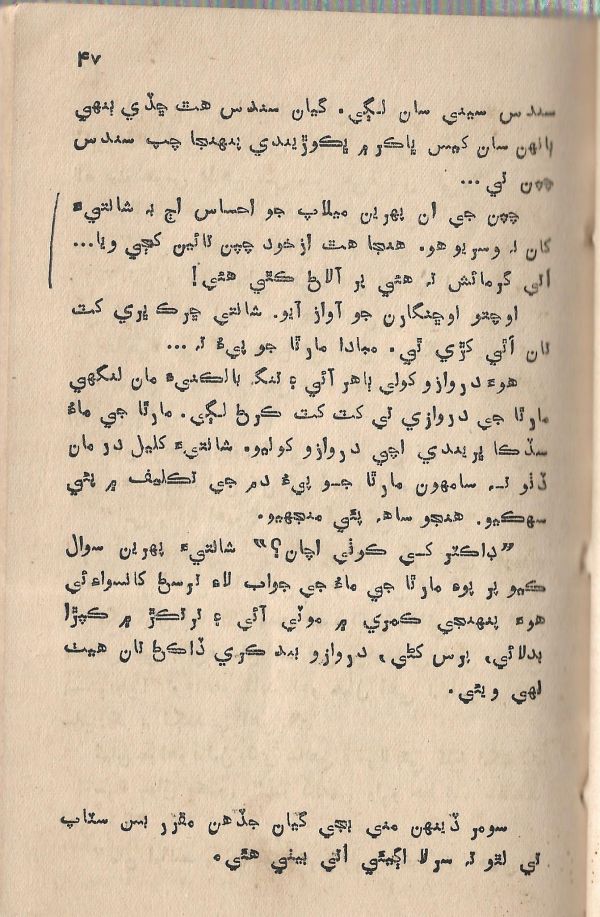 ۴۷
سندس سيني سان لڳي. گيان سندس هٿ ڇڏي ٻنهي
ٻانهن سان کيس ڀاڪر ۾ ڀڪوڙيندي پنهنجا چپ سندس
چپن تي...
چپن جي ان پهرين ميلاپ جو احساس اڄ به شانتيءَ
کان نه وسريو هو. هنجا هٿ ازخود چپن تائين کڄي ويا...
اُتي گرمائش نه هئي پر آلاڻ ڪٿي هئي!
اوچتو اوڇنگارن جو آواز آيو. شانتي ڇرڪ ڀري کٽ
تان اُٿي کڙي ٿي. مبادا مارٿا جو پيءُ ته...
هوءَ دروازو کولي ٻاهر آئي ۽ ننگ بالڪنيءَ مان لنگهي
مارٿا جي دروازي تي کٽ کٽ ڪرڻ لڳي. مارٿا جي ماءُ
سڏڪا ڀريندي اچي دروازو کوليو. شانتيءَ کليل در مان
ڏٺو ته سامهون مارٿا جو پيءُ دم جي تڪليف ۾ پئي
سهڪيو. هنجو ساهه پئي منجهيو.
”ڊاڪٽر کي کوٺي اچان؟“ شانتيءَ پهرين سوال
ڪيو پر پوءِ مارٿا جي ماءُ جي جواب لاءِ ترسڻ کانسواءِ ئي
هوءَ پنهنجي ڪمري ۾ موٽي آئي ۽ ترتڪڙ ۾ ڪپڙا
بدلائي، پرس کڻي، دروازو بند ڪري ڏاڪڻ تان هيٺ
لهي ويئي.
سومر ڏينهن مني بجي گيان جڏهن مقرر بس سٽاپ
تي لٿو ته سرلا اڳيئي اُتي بيٺي هئي.